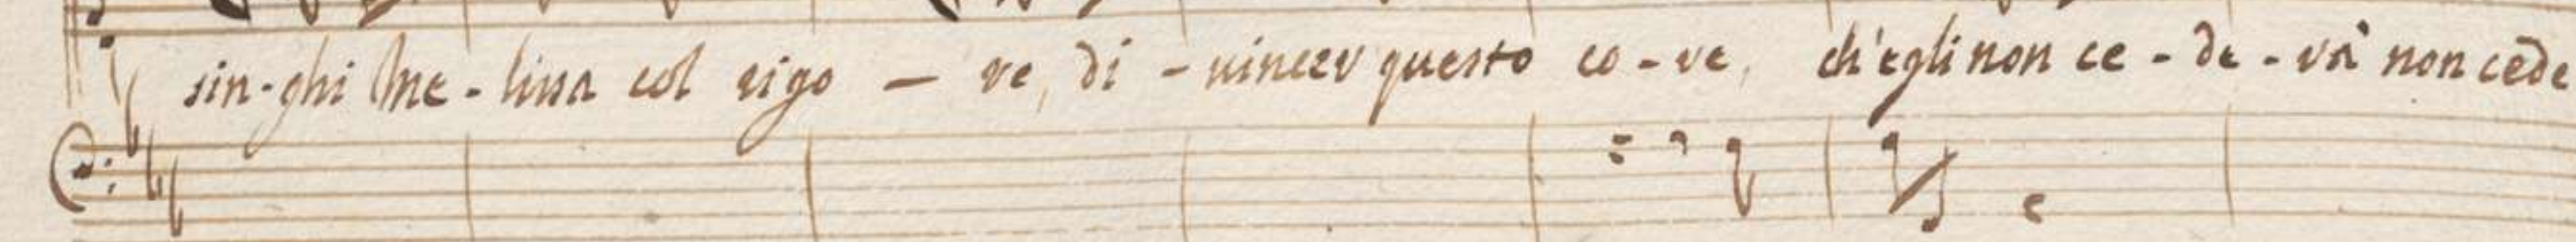 sin-ghi Me-lissa col rigo - re, di - vincer questo co-re, ch'egli non ce-de-rà non cede